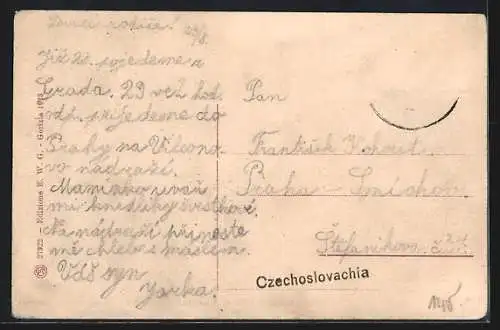 Drazí rodiče! 20/8.
Již 22. pojedeme z
Grada. 23 več. hod.
odp. přijedeme do
Prahy na Vilsono-
vo nádraží.
Maminko uvař
mi knedlíky švestkové.
Na nádraží přineste
mě chleba s máslem.
Váš syn
Jarka.
Pan
František Kohout
Praha - Smíchov
Štefanikova č. 24
Czechoslovachia
27822 - Edizione E. W. G. - Gorizia 1918